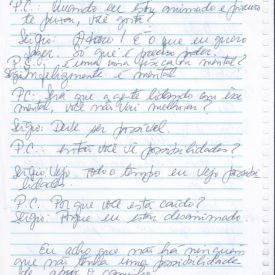 P.C.: Quando eu estou animado e procuro
te puxar, você gosta?
Sérgio: Adoro! É o que eu quero
fazer. Só que é preciso poder.
P.C.: é uma coisa física ou mental?
Sérgio: Infelizmente é mental.
P.C.: Será que a gente lidando com esse
mental, você não vai melhorar?
Sérgio: Deve ser possível.
P.C.: então você vê possibilidades?
Sérgio: Vejo. Todo o tempo eu vejo possibi
lidades.
P.C. Por que você está caído?
Sérgio: Porque eu estou desanimado.
Eu acho que não há ninguém
que não tenha uma possibilidade
de abrir o caminho